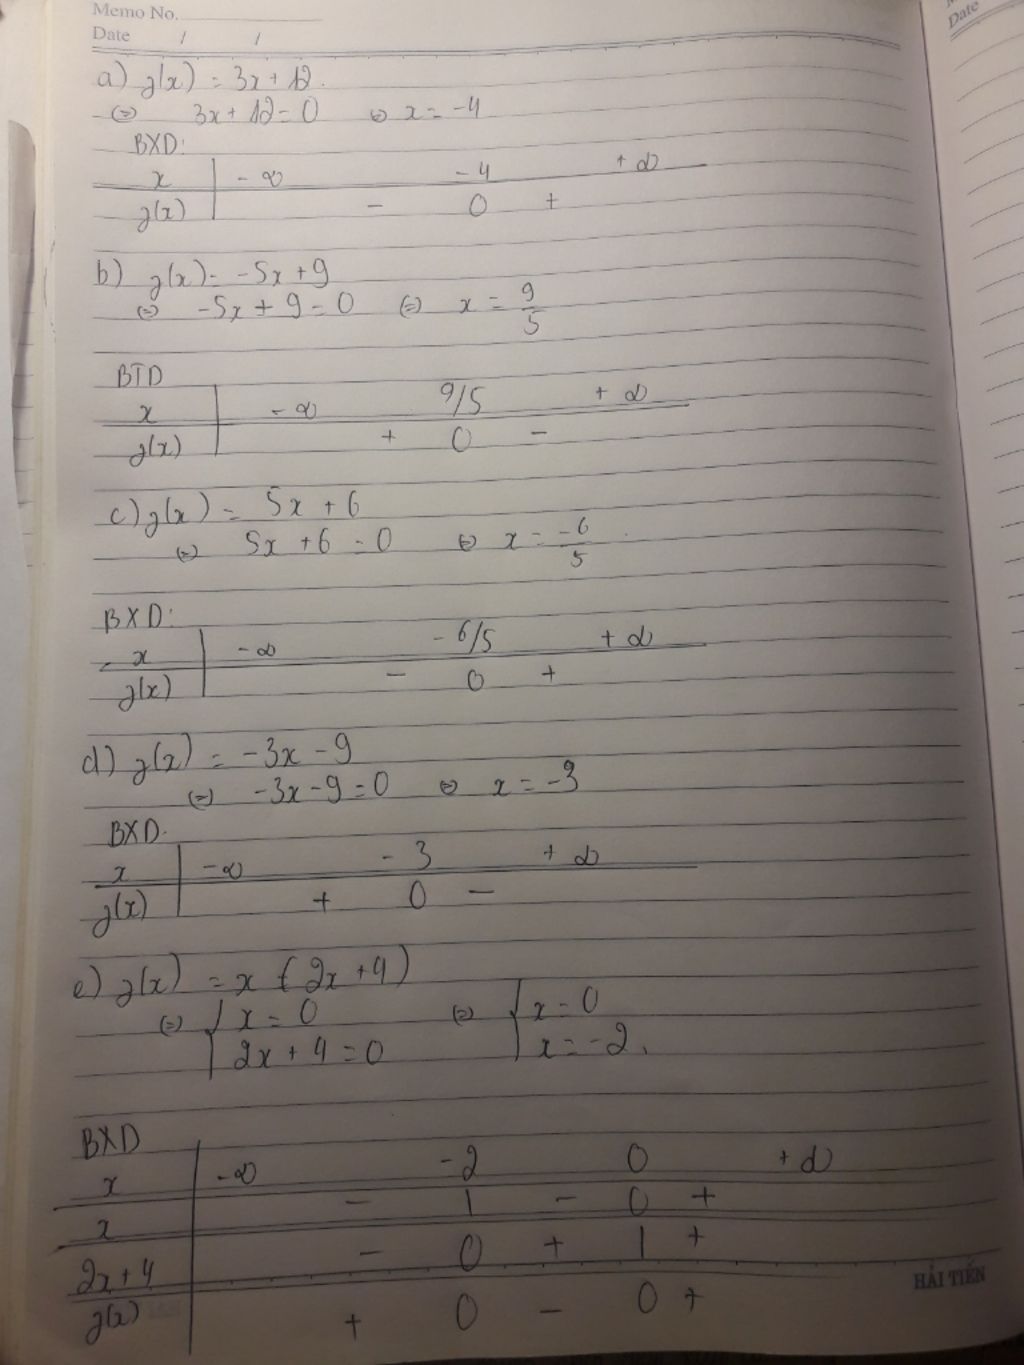 Memo No.
Date / /
Date
a) f(x) = 3x + 12.
(=) 3x + 12 = 0 (=) x = -4
BXD:
x | -∞ -4 +∞
f(x) | - 0 +
b) f(x) = -5x + 9
(=) -5x + 9 = 0 (=) x = 9/5
BTD
x | -∞ 9/5 +∞
f(x) | + 0 -
c) f(x) = 5x + 6
(=) 5x + 6 = 0 (=) x = -6/5
BXD:
x | -∞ -6/5 +∞
f(x) | - 0 +
d) f(x) = -3x - 9
(=) -3x - 9 = 0 (=) x = -3
BXD.
x | -∞ -3 +∞
f(x) | + 0 -
e) f(x) = x (2x + 4)
(=) [ x = 0 (=) [ x = 0
2x + 4 = 0 x = -2.
BXD
x | -∞ -2 0 +∞
x | - | - 0 +
2x + 4 | - 0 + | +
f(x) | + 0 - 0 +
HẢI TIẾN